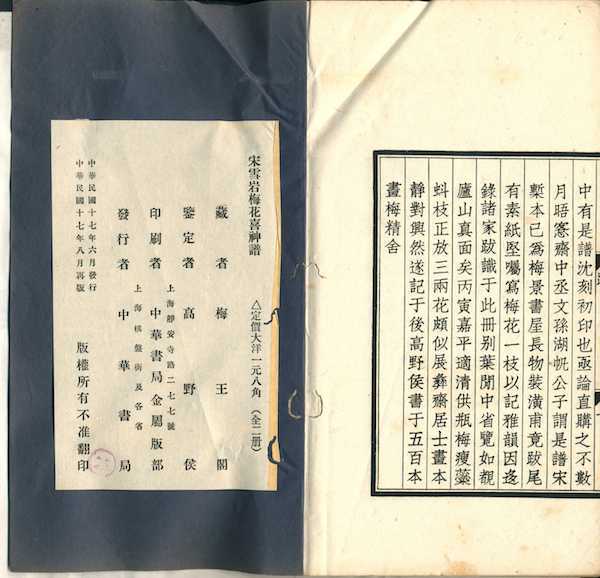 中有是譜沈刻初印也亟論直購之不數
月晤愙齋中丞文孫湖帆公子謂是譜宋
槧本已為梅景書屋長物裝潢甫竟跋尾
有素紙堅囑寫梅花一枝以記雅韻因逄
錄諸家跋識于此冊别葉閒中省覽如覩
廬山真面矣丙寅嘉平適清供瓶梅瘦蘂
蚪枝正放三兩花頗似展彝齋居士畫本
靜對興然遂記于後高野侯書于五百本
畫梅精舍
宋雪岩梅花喜神譜
△定價大洋一元八角(全二册)
藏者梅王閣
鑒定者高野侯
上海靜安寺路二七七號
印刷者中華書局金屬版部
上海棋盤街及各省
發行者中華書局
版權所有不准翻印
中華民國十七年六月發行
中華民國十七年八月再版